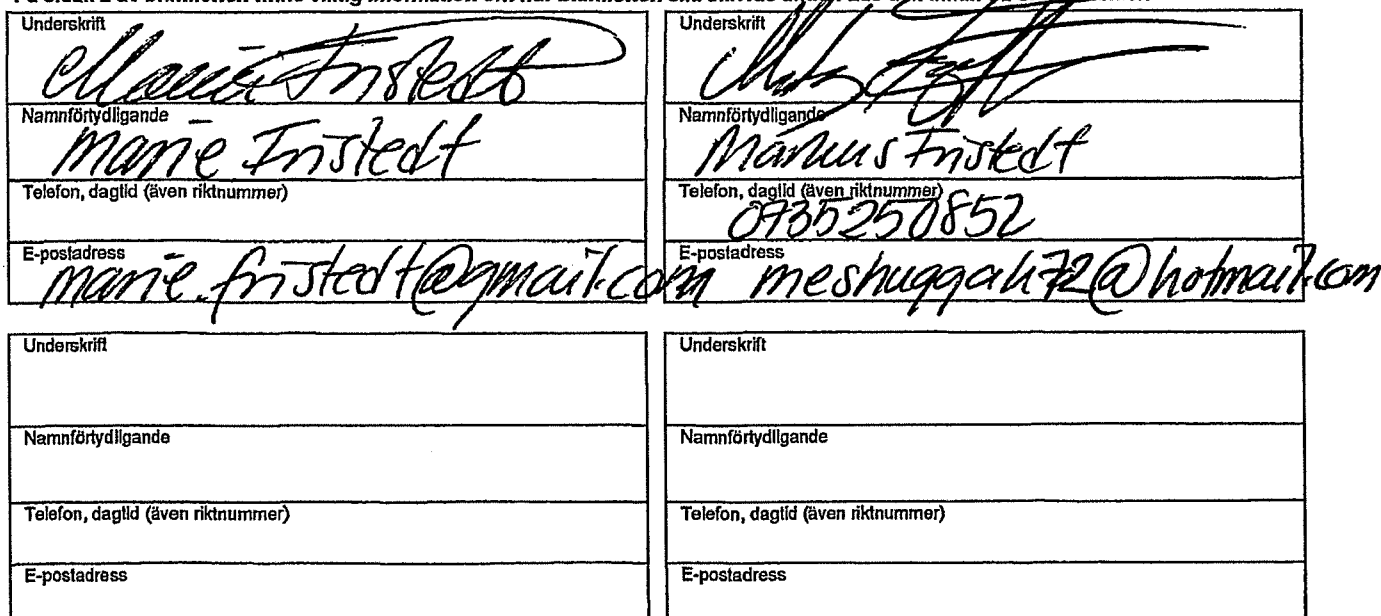 Underskrift
Marie Fristedt
Namnförtydligande
Marie Fristedt
Telefon, dagtid (även riktnummer)
E-postadress
marie.fristedt@gmail.com
Underskrift
Namnförtydligande
Markus Fristedt
Telefon, dagtid (även riktnummer)
0735250852
E-postadress
meshuggah72@hotmail.com
Underskrift
Namnförtydligande
Telefon, dagtid (även riktnummer)
E-postadress
Underskrift
Namnförtydligande
Telefon, dagtid (även riktnummer)
E-postadress